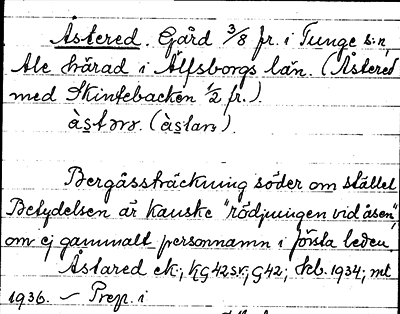 Åstered. Gård 3/8 fr. i Tunge s:n,
Ale härad i Älfsborgs län. (Åstered
med Skintebacken 1/2 fr.).
àstərə. (àstarə).
Bergåssträckning söder om stället
Betydelsen är kanske "rödjningen vid åsen",
om ej gammalt personnamn i första leden.
Åstared ek; KG42sv; G42; skb. 1934; mt
1936. – Prep. i